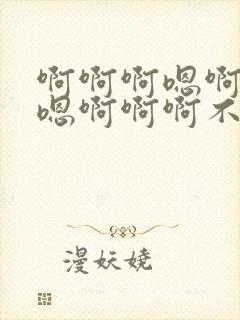 啊啊啊嗯啊
嗯啊啊啊不
漫妖娆